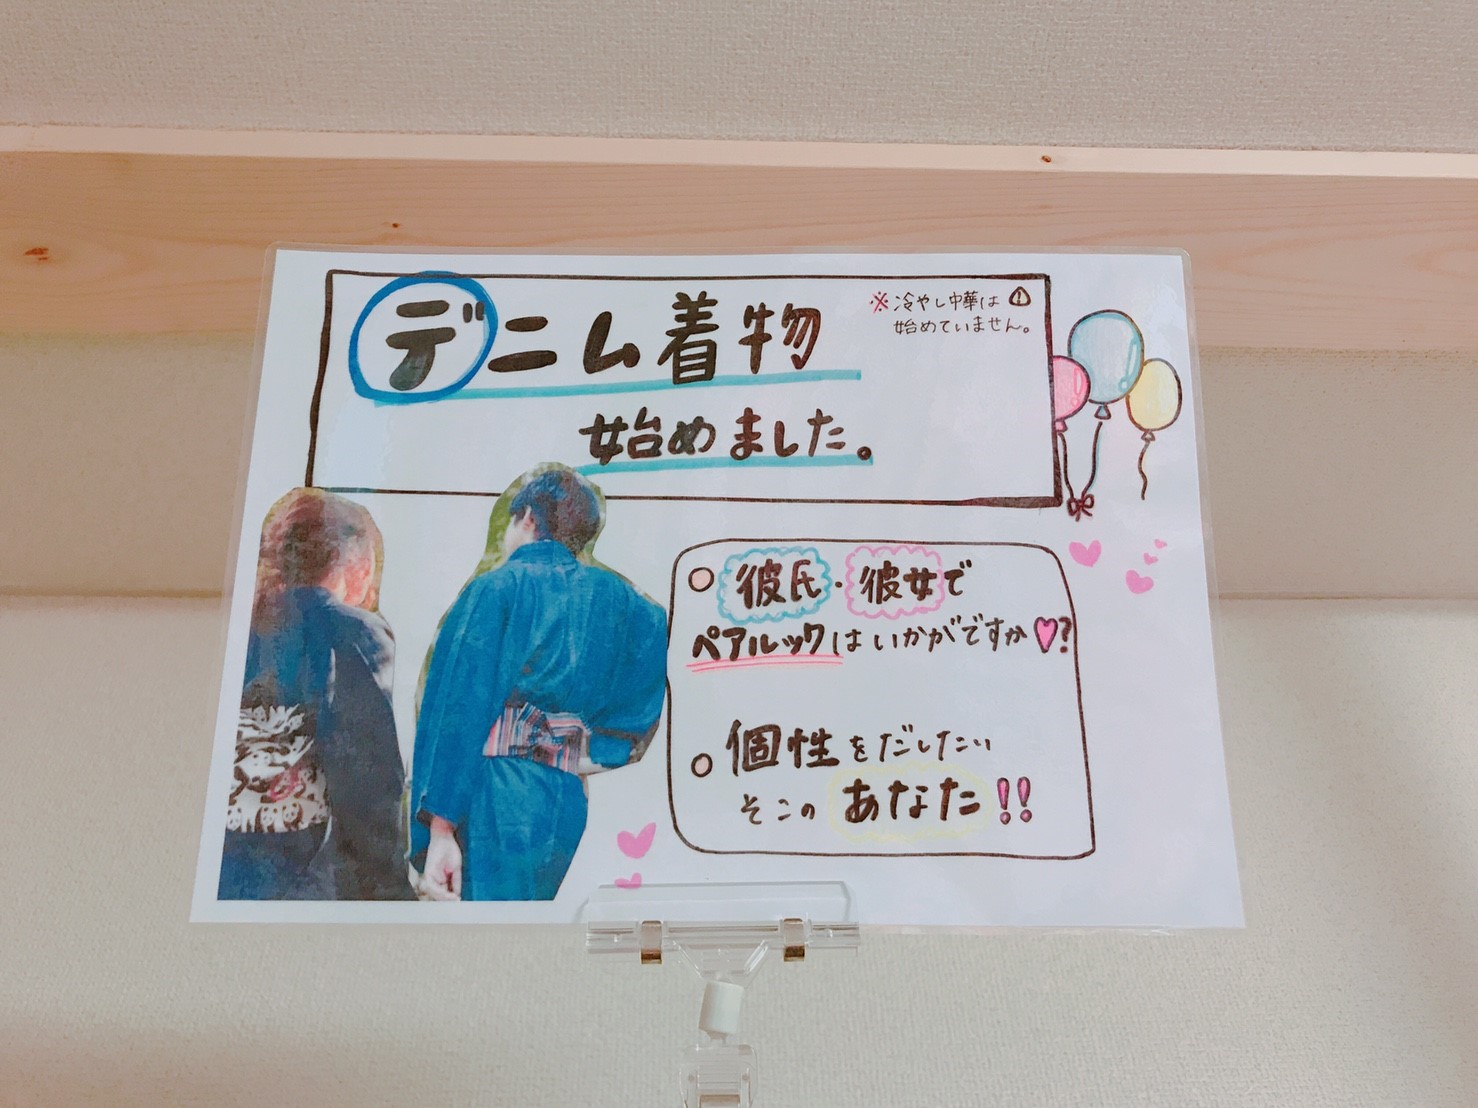 デニム着物
始めました。
※冷やし中華は
始めていません。
彼氏・彼女で
ペアルックはいかがですか♡?
個性をだしたい
そこのあなた!!